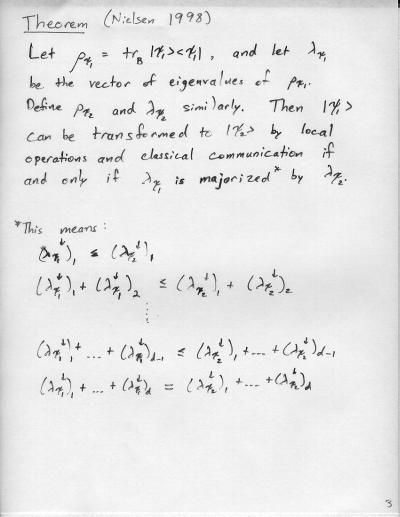 Theorem (Nielsen 1998)
Let ρ_ψ₁ = tr_B |ψ₁><ψ₁|, and let λ_ψ₁
be the vector of eigenvalues of ρ_ψ₁.
Define ρ_ψ₂ and λ_ψ₂ similarly. Then |ψ₁>
can be transformed to |ψ₂> by local
operations and classical communication if
and only if λ_ψ₁ is majorized* by λ_ψ₂.
*This means:
(λ_ψ₁^↓)₁ ≤ (λ_ψ₂^↓)₁
(λ_ψ₁^↓)₁ + (λ_ψ₁^↓)₂ ≤ (λ_ψ₂^↓)₁ + (λ_ψ₂^↓)₂
⋮
(λ_ψ₁^↓)₁ + ... + (λ_ψ₁^↓)_d-1 ≤ (λ_ψ₂^↓)₁ + ... + (λ_ψ₂^↓)_d-1
(λ_ψ₁^↓)₁ + ... + (λ_ψ₁^↓)_d = (λ_ψ₂^↓)₁ + ... + (λ_ψ₂^↓)_d
3